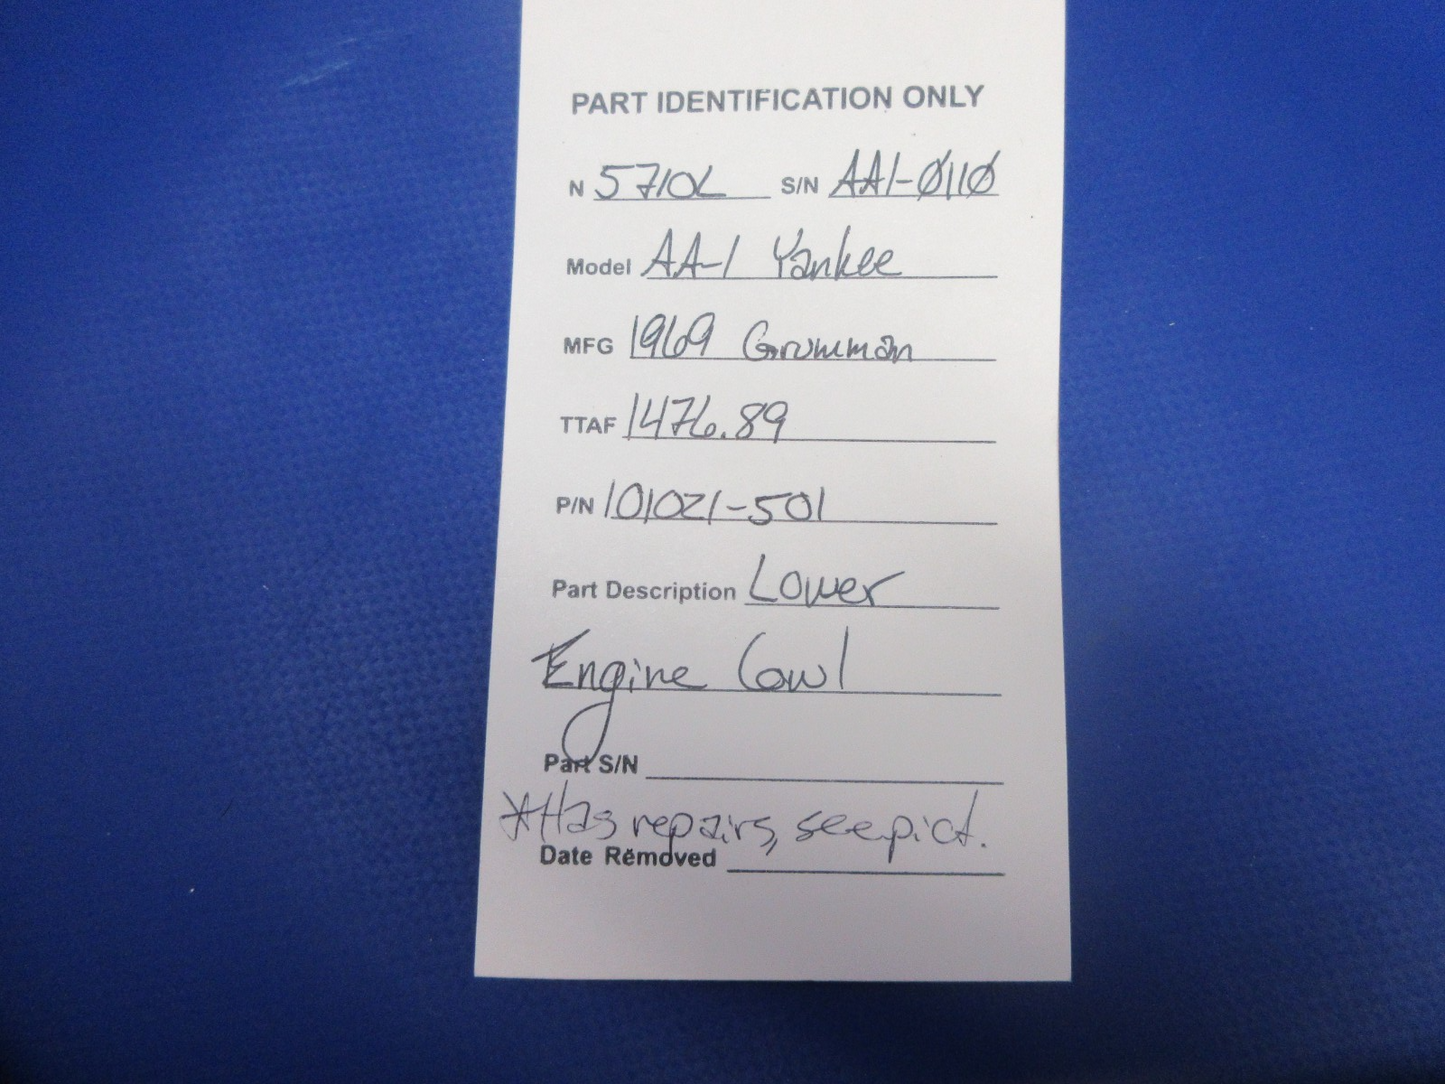 PART IDENTIFICATION ONLY
N 5710L S/N AA1-0110
Model AA-1 Yankee
MFG 1969 Grumman
TTAF 1476.89
P/N 101021-501
Part Description Lower
Engine Cowl
Part S/N
*Has repairs, see pict.
Date Removed